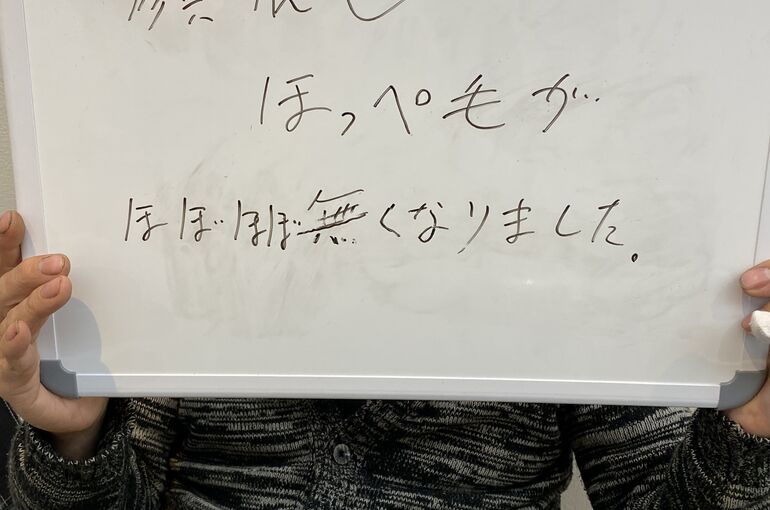 ほっぺ毛が
ほぼほぼ無くなりました。